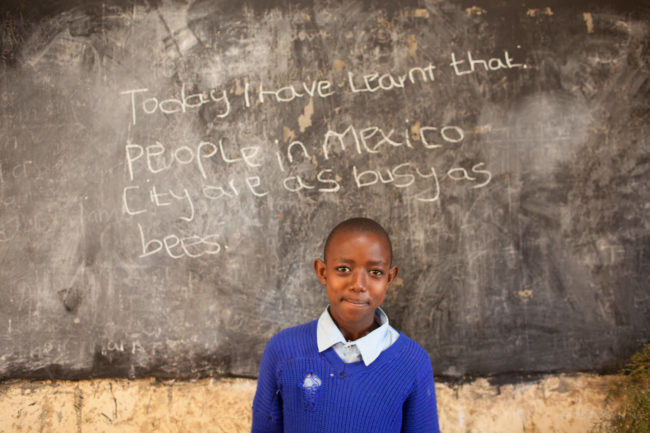 Today I have Learnt that.
People in Mexico
City are as busy as
bees.